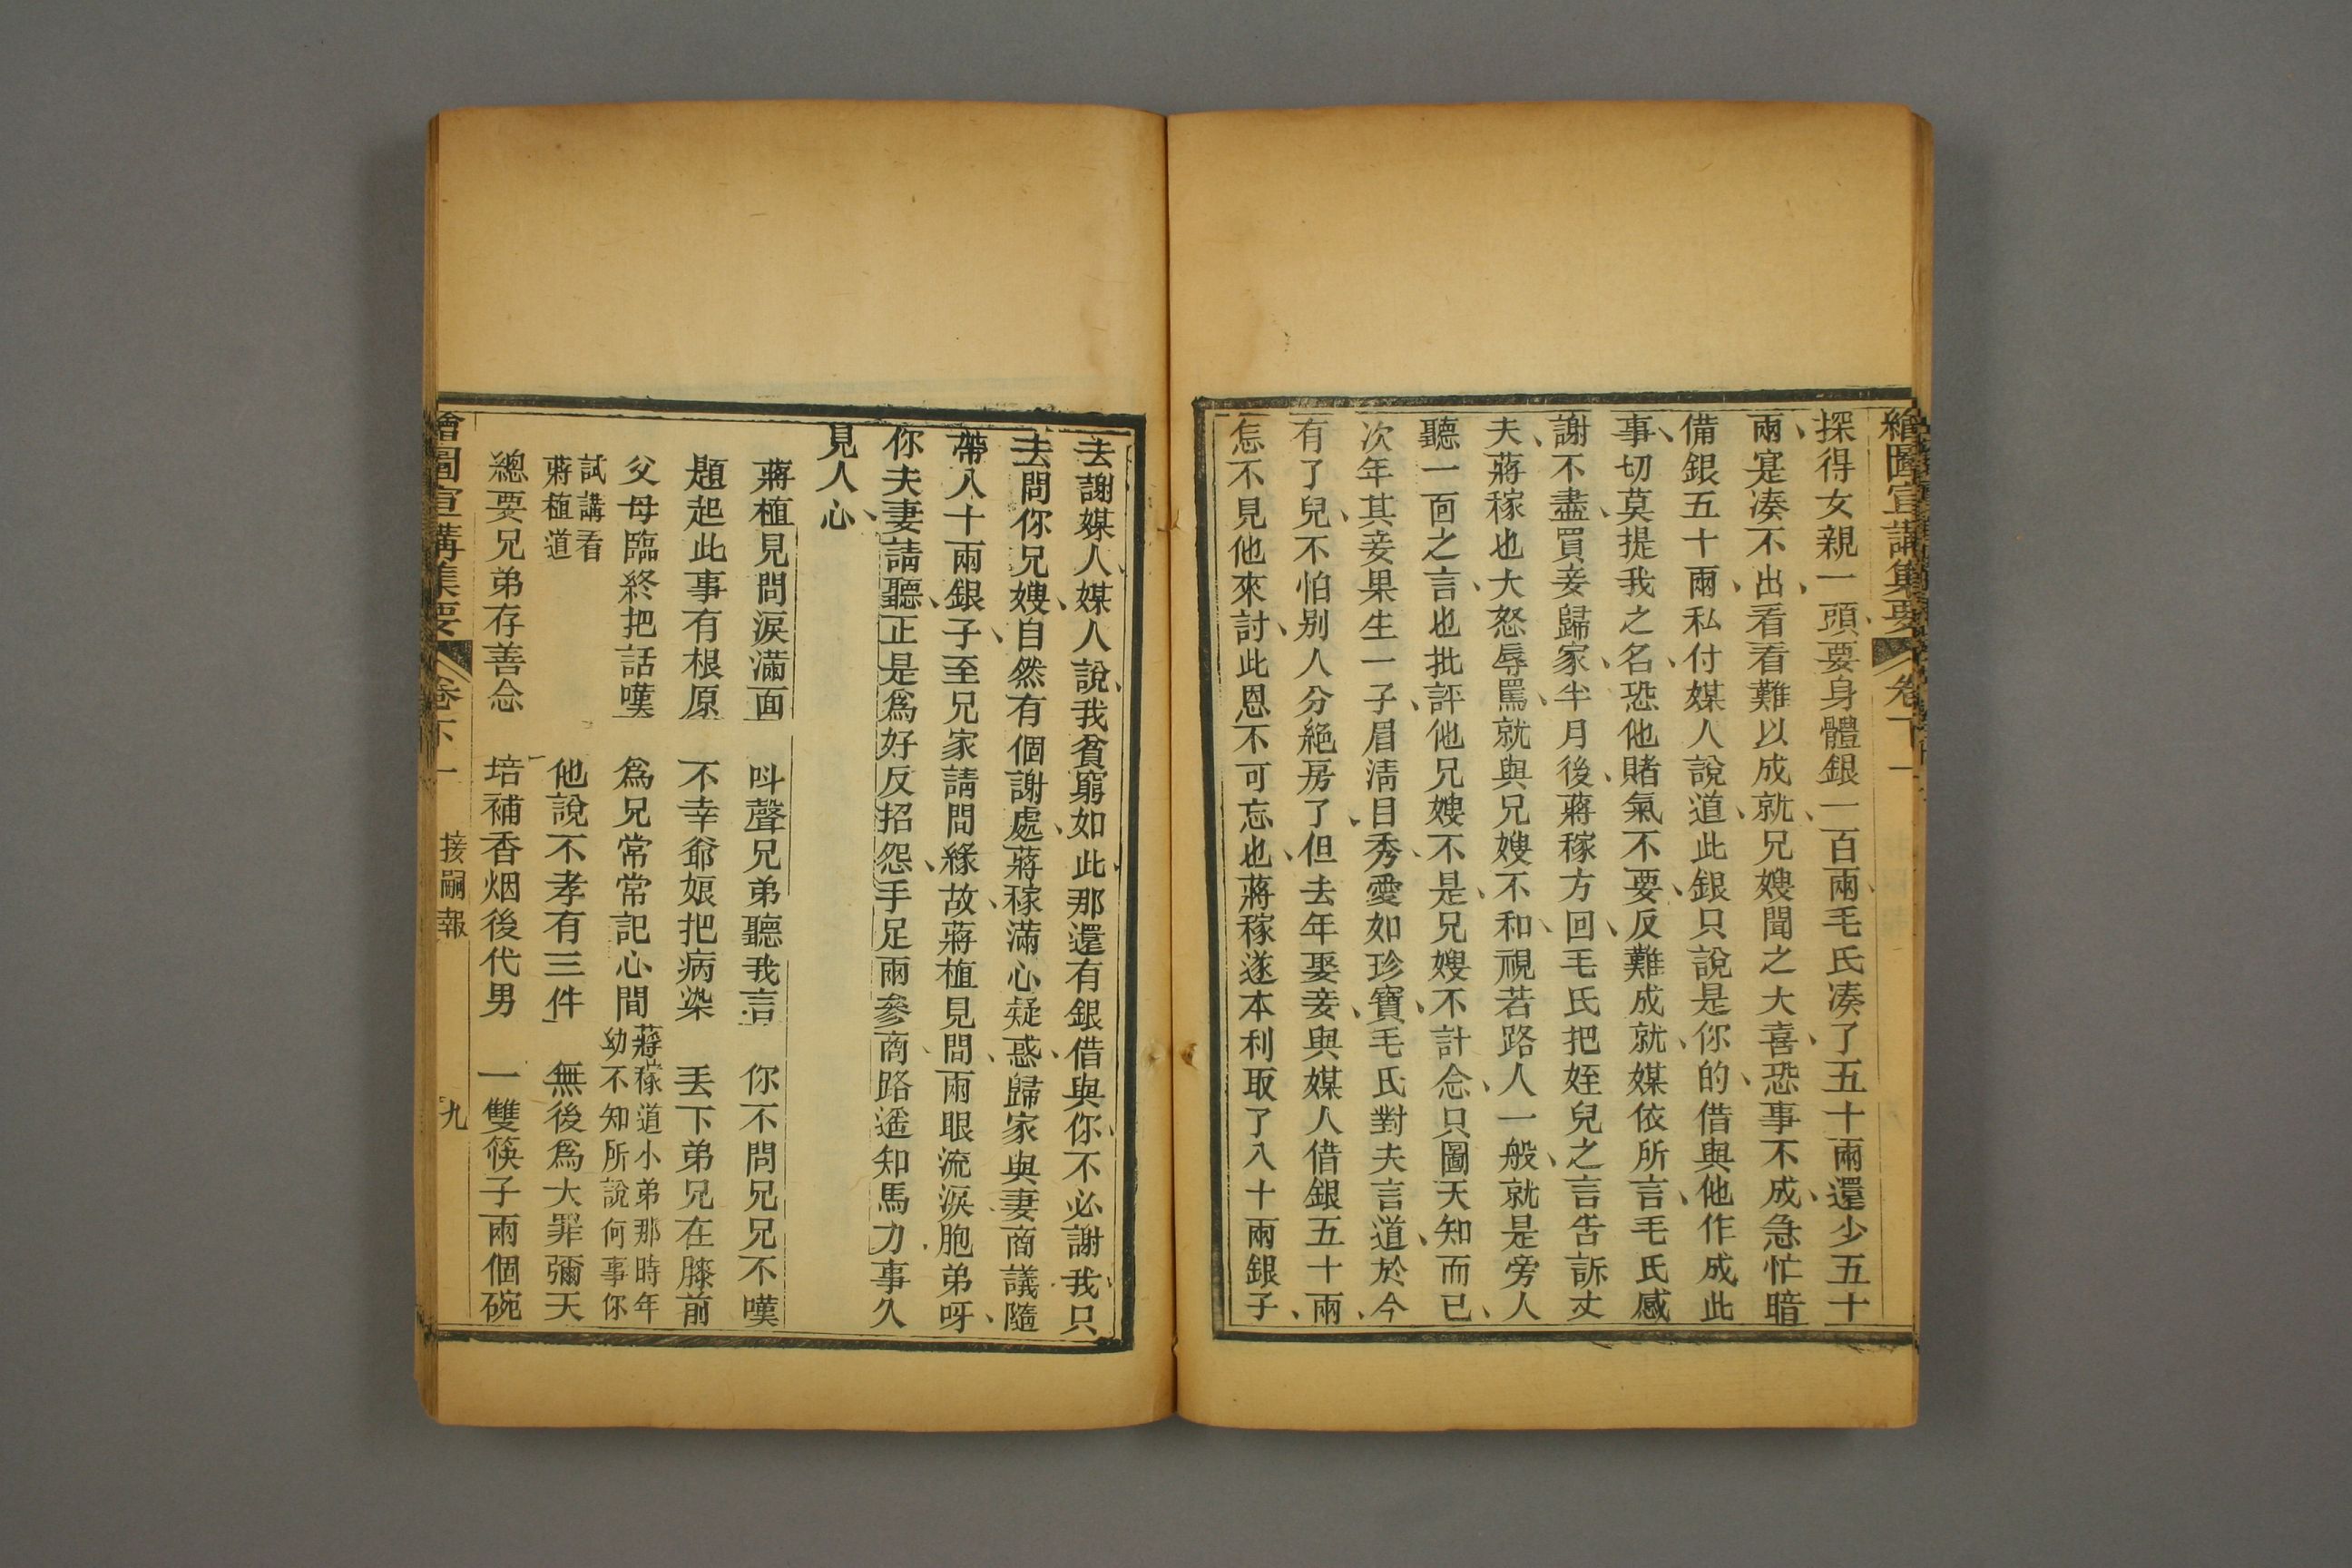 繪圖宣講集要 卷下一
探得女親一頭、要身體銀一百兩、毛氏凑了五十兩還少五十
兩、寔凑不出、看看難以成就、兄嫂聞之大喜、恐事不成、急忙暗
備銀五十兩、私付媒人說道、此銀只說是你的、借與他作成此
事、切莫提我之名、恐他賭氣不要、反難成就、媒依所言、毛氏感
謝不盡、買妾歸家、半月後、蔣稼方回、毛氏把姪兒之言告訴丈
夫、蔣稼也大怒辱罵、就與兄嫂不和、視若路人一般、就是旁人
聽一面之言、也批評他兄嫂不是、兄嫂不計念、只圖天知而已、
次年其妾果生一子、眉清目秀、愛如珍寶、毛氏對夫言道、於今
有了兒、不怕別人分絕房了、但去年娶妾、與媒人借銀五十兩、
怎不見他來討、此恩不可忘也、蔣稼遂本利取了八十兩銀子、
去謝媒人、媒人說、我貧窮如此、那還有銀借與你、不必謝我、只
去問你兄嫂、自然有個謝處、蔣稼滿心疑惑、歸家與妻商議、隨
帶八十兩銀子、至兄家請問緣故、蔣植見問、兩眼流淚、胞弟呀、
你夫妻請聽、正是爲好反招怨、手足兩參商、路遙知馬力、事久
見人心、
蔣植見問淚滿面 呌聲兄弟聽我言 你不問兄兄不嘆
題起此事有根原 不幸爺娘把病染 丟下弟兄在膝前
父母臨終把話嘆 爲兄常常記心間 蔣稼道小弟那時年幼不知所說何事你
試講看蔣植道 他說不孝有三件 無後爲大罪彌天
總要兄弟存善念 培補香烟後代男 一雙筷子兩個碗
繪圖宣講集要 卷下一 接嗣報 九